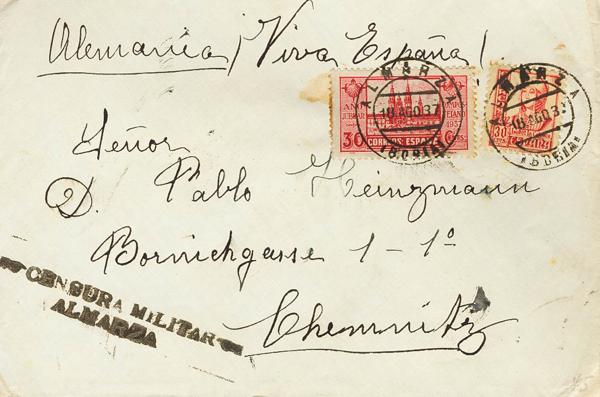 Alemania ¡Viva España!
ALMARZA
18 AGO 37
(SORIA)
AÑO JUBILAR
1937
30
CORREOS ESPAÑA
ALMARZA
18 AGO 37
(SORIA)
30
Señor
D. Pablo Heinzmann
Bornichgasse 1 - 1º
Chemnitz
CENSURA MILITAR
ALMARZA